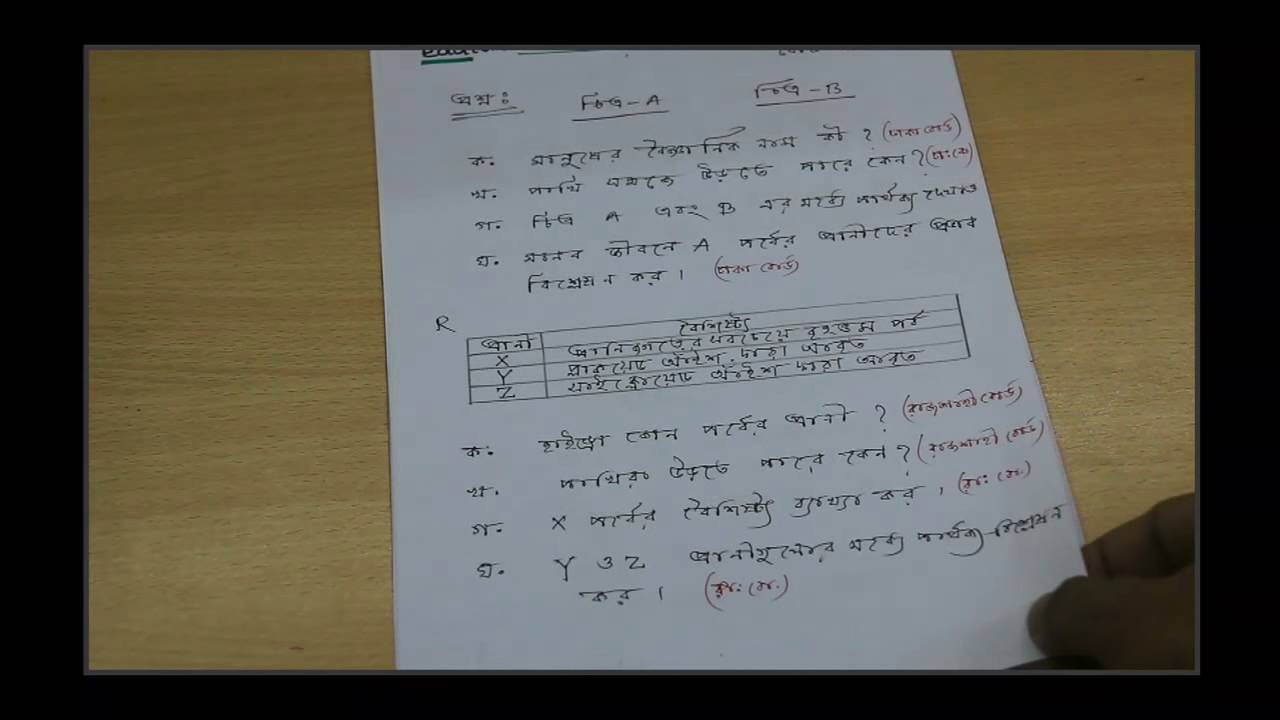 প্রশ্ন: চিত্র-A চিত্র-B
ক. মানুষের বৈজ্ঞানিক নাম কী ? (ঢাকা বোর্ড)
খ. পাখি সহজে উড়তে পারে কেন ? (ঢা: বো)
গ. চিত্র A এবং B এর মধ্যে পার্থক্য দেখাও
ঘ. মানব জীবনে A পর্বের প্রাণীদের প্রভাব
বিশ্লেষন কর । (ঢাকা বোর্ড)
R
প্রানী বৈশিষ্ট্য
X প্রানিজগতের সবচেয়ে বৃহত্তম পর্ব
Y প্লাকয়েড আঁইশ দ্বারা আবৃত
Z সাইক্লোয়েড আঁইশ দ্বারা আবৃত
ক. হাইড্রা কোন পর্বের প্রানী ? (রাজশাহী বোর্ড)
খ. পাখিরা উড়তে পারে কেন ? (রাজশাহী বোর্ড)
গ. X পর্বের বৈশিষ্ট্য ব্যাখ্যা কর । (রা: বো.)
ঘ. Y ও Z প্রানীগুলোর মধ্যে পার্থক্য বিশ্লেষন
কর । (রা: বো.)